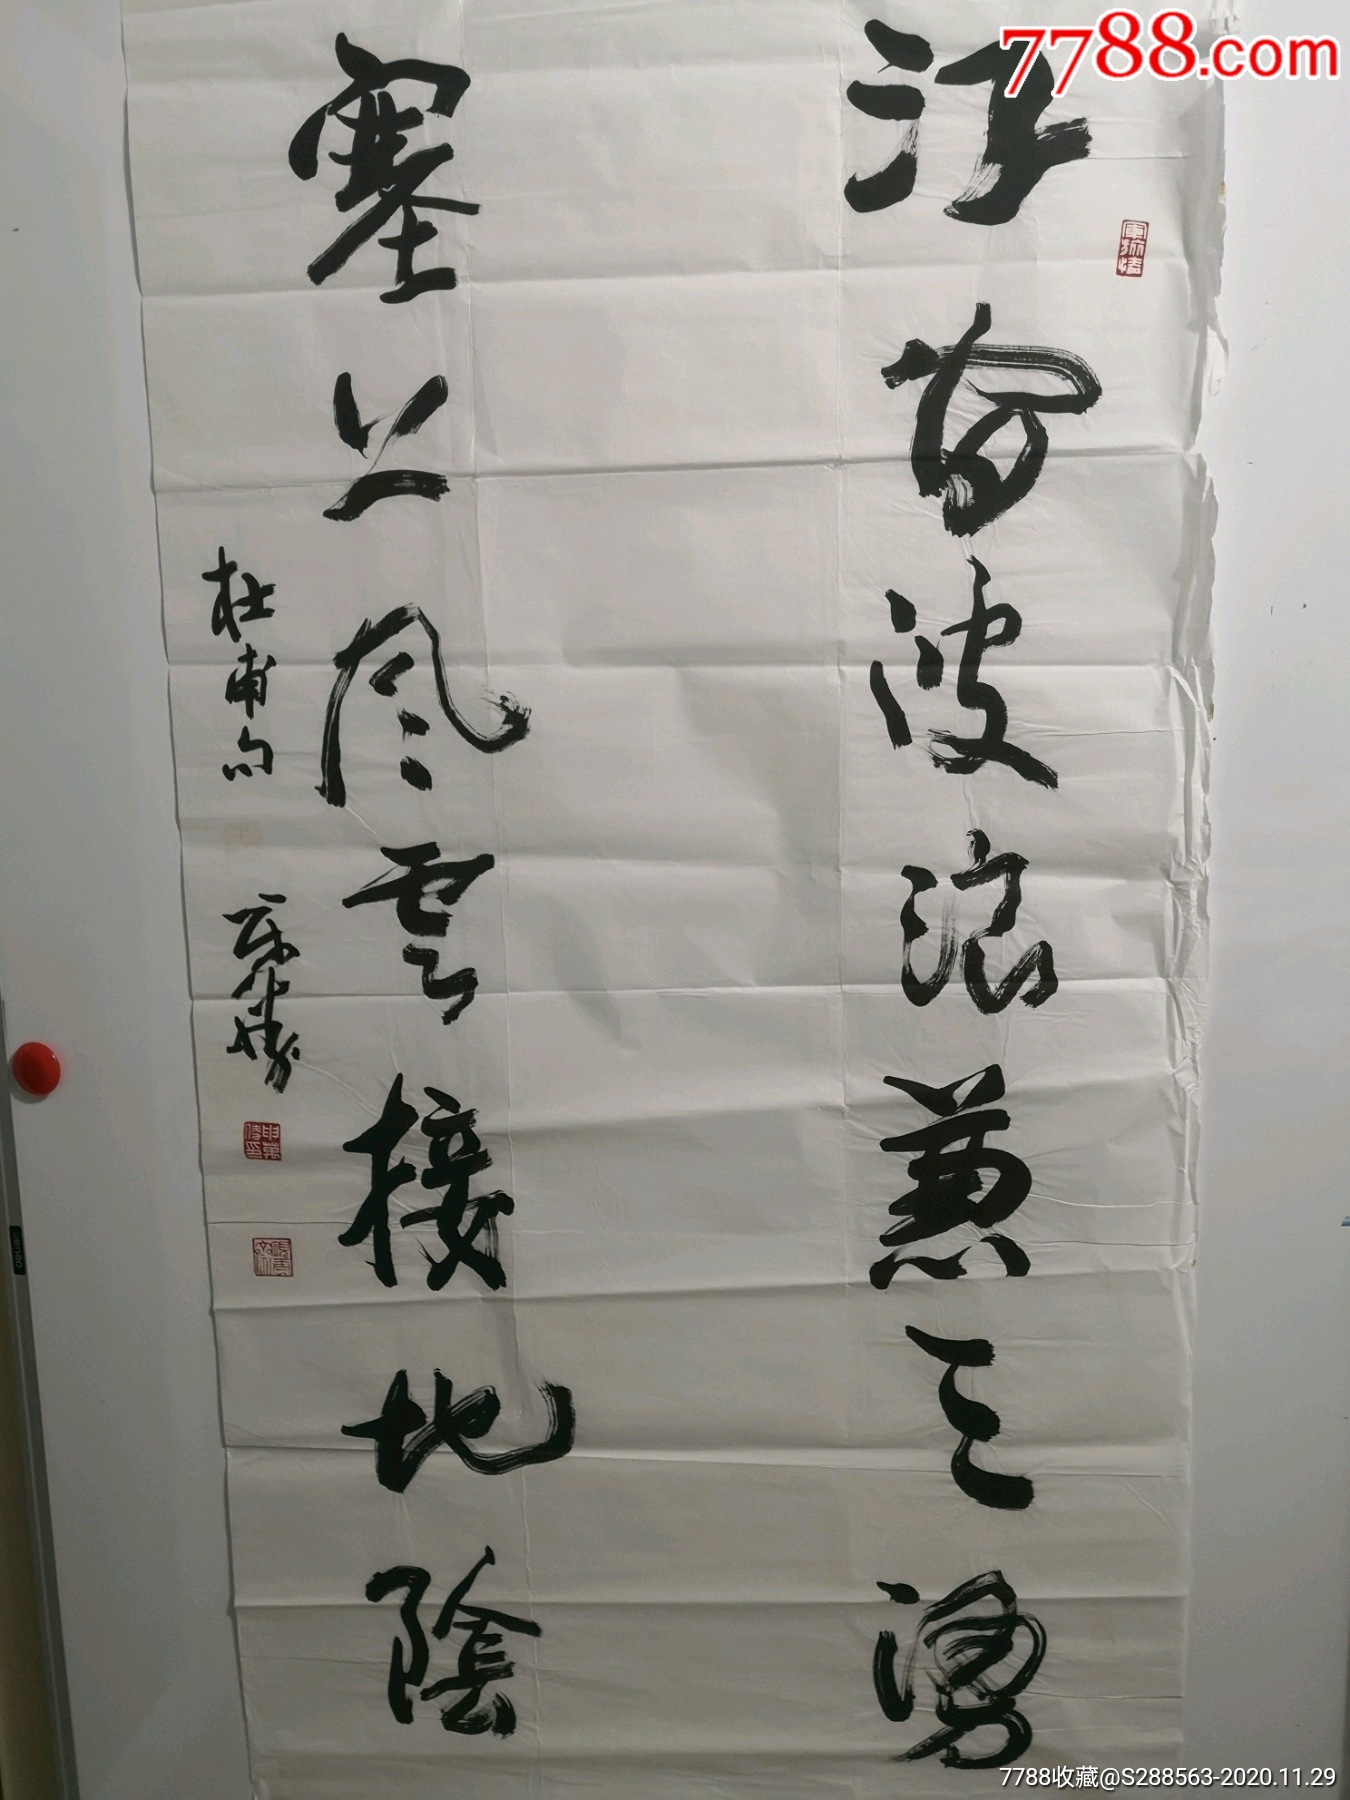 7788.com
江間波浪兼天湧
塞上風雲接地陰
杜甫句
萬勝
申萬勝印
軍旅情
7788收藏@S288563-2020.11.29